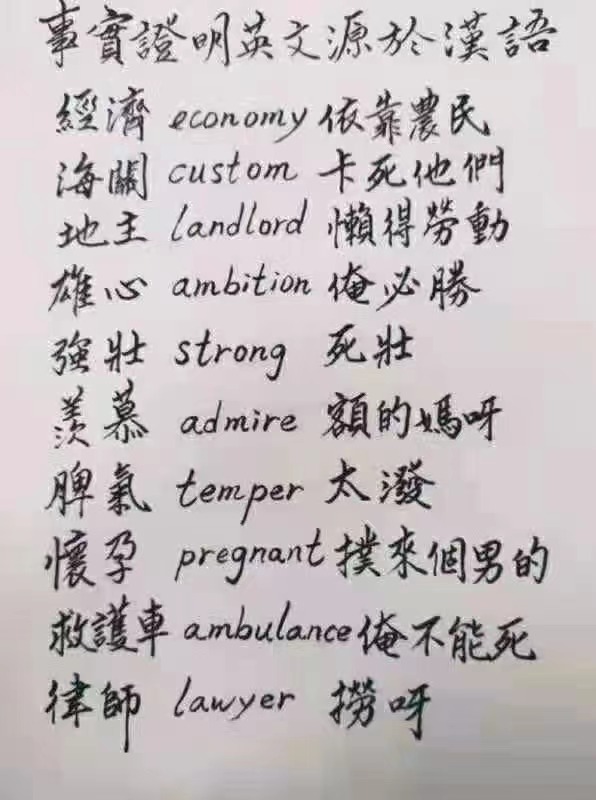 事實證明英文源於漢語
經濟 economy 依靠農民
海關 custom 卡死他們
地主 landlord 懶得勞動
雄心 ambition 俺必勝
強壯 strong 死壯
羨慕 admire 額的媽呀
脾氣 temper 太潑
懷孕 pregnant 撲來個男的
救護車 ambulance 俺不能死
律師 lawyer 撈呀